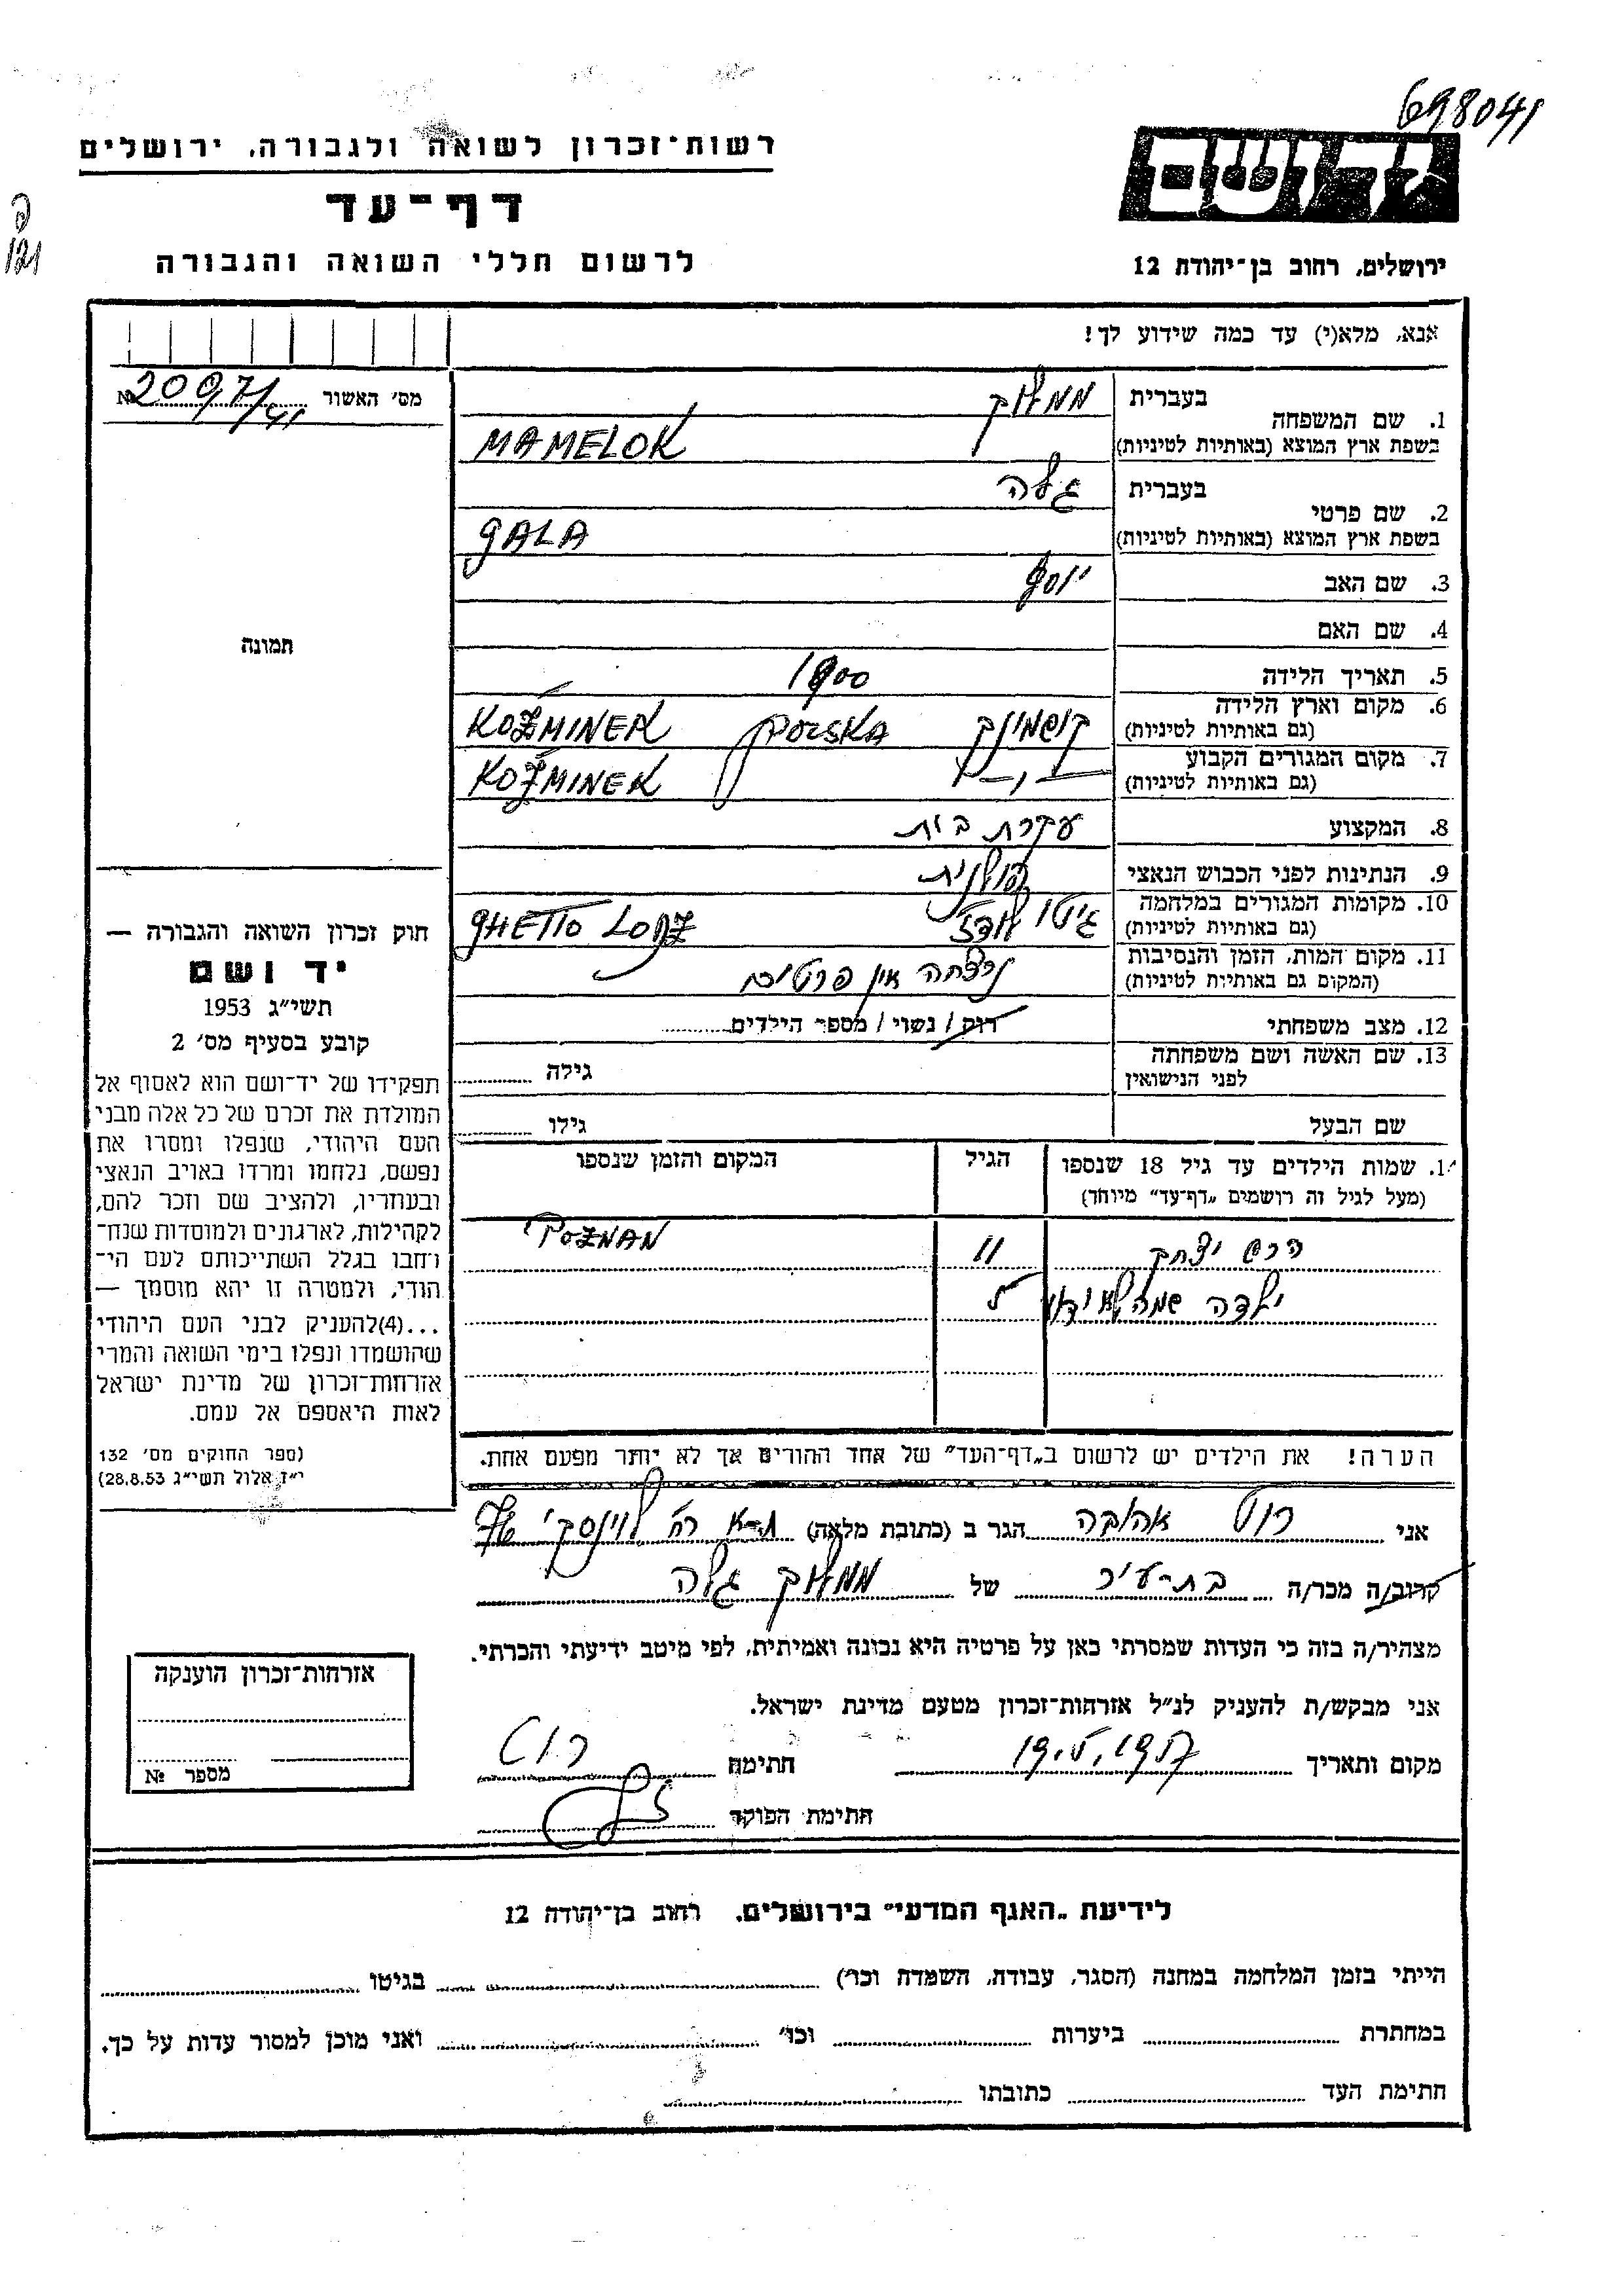 698041
רשות־זכרון לשואה ולגבורה, ירושלים
דף־עד
לרשום חללי השואה והגבורה
יד ושם
ירושלים, רחוב בן־יהודה 12
121
אנא, מלא(י) עד כמה שידוע לך!
מס׳ האשור № 2097/41
1. שם המשפחה
בעברית ממלוק
בשפת ארץ המוצא (באותיות לטיניות) MAMELOK
2. שם פרטי
בעברית גלה
בשפת ארץ המוצא (באותיות לטיניות) GALA
3. שם האב יוסף
4. שם האם
5. תאריך הלידה 1900
6. מקום וארץ הלידה
(גם באותיות לטיניות) קוזמינק POLSKA KOŹMINEK
7. מקום המגורים הקבוע
(גם באותיות לטיניות) —״— KOŹMINEK
8. המקצוע עקרת בית
9. הנתינות לפני הכבוש הנאצי פולנית
10. מקומות המגורים במלחמה
(גם באותיות לטיניות) גיטו לודז׳ GHETTO LODZ
11. מקום המות, הזמן והנסיבות
(המקום גם באותיות לטיניות) ניצחה אין פרטים
12. מצב משפחתי רווק / נשוי / מספר הילדים
13. שם האשה ושם משפחתה
לפני הנישואין גילה
שם הבעל גילו
1. שמות הילדים עד גיל 18 שנספו
(מעל לגיל זה רושמים „דף־עד״ מיוחד)
הגיל
המקום והזמן שנספו
הרש יצחק 11 POZNAN
ילדה
הערה! את הילדים יש לרשום ב„דף־העד״ של אחד ההורים אך לא יותר מפעם אחת.
תמונה
חוק זכרון השואה והגבורה —
יד ושם
תשי״ג 1953
קובע בסעיף מס׳ 2
תפקידו של יד־ושם הוא לאסוף אל
המולדת את זכרם של כל אלה מבני
העם היהודי, שנפלו ומסרו את
נפשם, נלחמו ומרדו באויב הנאצי
ובעוזריו, ולהציב שם וזכר להם,
לקהילות, לארגונים ולמוסדות שנח־
רחבו בגלל השתייכותם לעם הי־
הודי, ולמטרה זו יהא מוסמך —
...(4)להעניק לבני העם היהודי
שהושמדו ונפלו בימי השואה והמרי
אזרחות־זכרון של מדינת ישראל
לאות היאספם אל עמם.
(ספר החוקים מס׳ 132
י״ז אלול תשי״ג 28.8.53)
אני רוט אהובה הגר ב (כתובת מלאה) ת־א רח׳ לוינסקי
קרוב/ה מכר/ה בת־עיר של ממלוק גלה
מצהיר/ה בזה כי העדות שמסרתי כאן על פרטיה היא נכונה ואמיתית, לפי מיטב ידיעתי והכרתי.
אני מבקש/ת להעניק לנ״ל אזרחות־זכרון מטעם מדינת ישראל.
מקום ותאריך 19.5.1957 חתימה רוט
חתימת הפוקד
אזרחות־זכרון הוענקה
מספר №
לידיעת „האגף המדעי״ בירושלים, רחוב בן־יהודה 12
הייתי בזמן המלחמה במחנה (הסגר, עבודה, השמדה וכו׳) בגיטו
במחתרת ביערות וכו׳ ואני מוכן למסור עדות על כך.
חתימת העד כתובתו